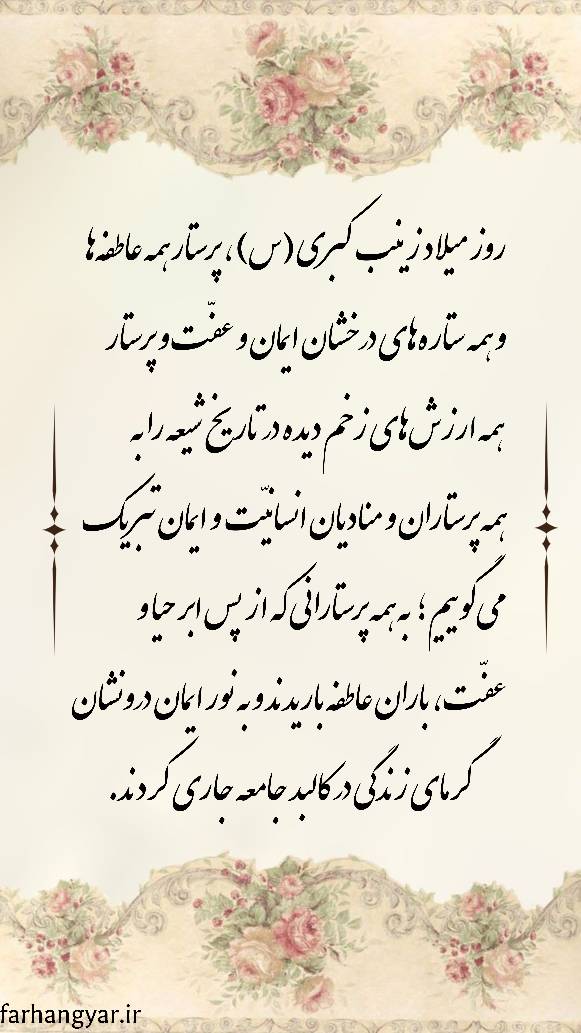 روز میلاد زینب کبری (س)، پرستار همه عاطفه‌ها
و همه ستاره‌های درخشان ایمان و عفّت و پرستار
همه ارزش‌های زخم دیده در تاریخ شیعه را به
همه پرستاران و منادیان انسانیّت و ایمان تبریک
می‌گوییم؛ به همه پرستارانی که از پس ابر حیا و
عفّت، باران عاطفه باریدند و به نور ایمان درونشان
گرمای زندگی در کالبد جامعه جاری کردند.
farhangyar.ir